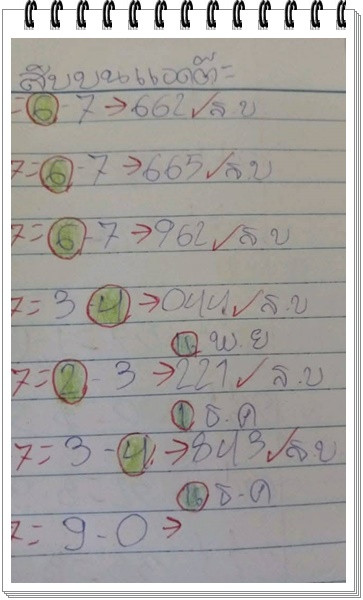 สิบบนแอดต๊ะ
= 6 - 7 → 662 ✓ ส.บ
7 = 6 - 7 → 665 ✓ ส.บ
7 = 6 - 7 → 962 ✓ ส.บ
7 = 3 - 4 → 044 ✓ ส.บ
16 พ.ย
7 = 2 - 3 → 221 ✓ ส.บ
1 ธ.ค
7 = 3 - 4 → 843 ✓ ส.บ
16 ธ.ค
= 9 - 0 →